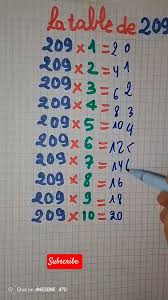 la table de 209
209 × 1 = 2 0
209 × 2 = 4 1
209 × 3 = 6 2
209 × 4 = 8 3
209 × 5 = 10 4
209 × 6 = 12 5
209 × 7 = 14 6
209 × 8 = 16
209 × 9 = 18
209 × 10 = 20
Subscribe
AWESOME